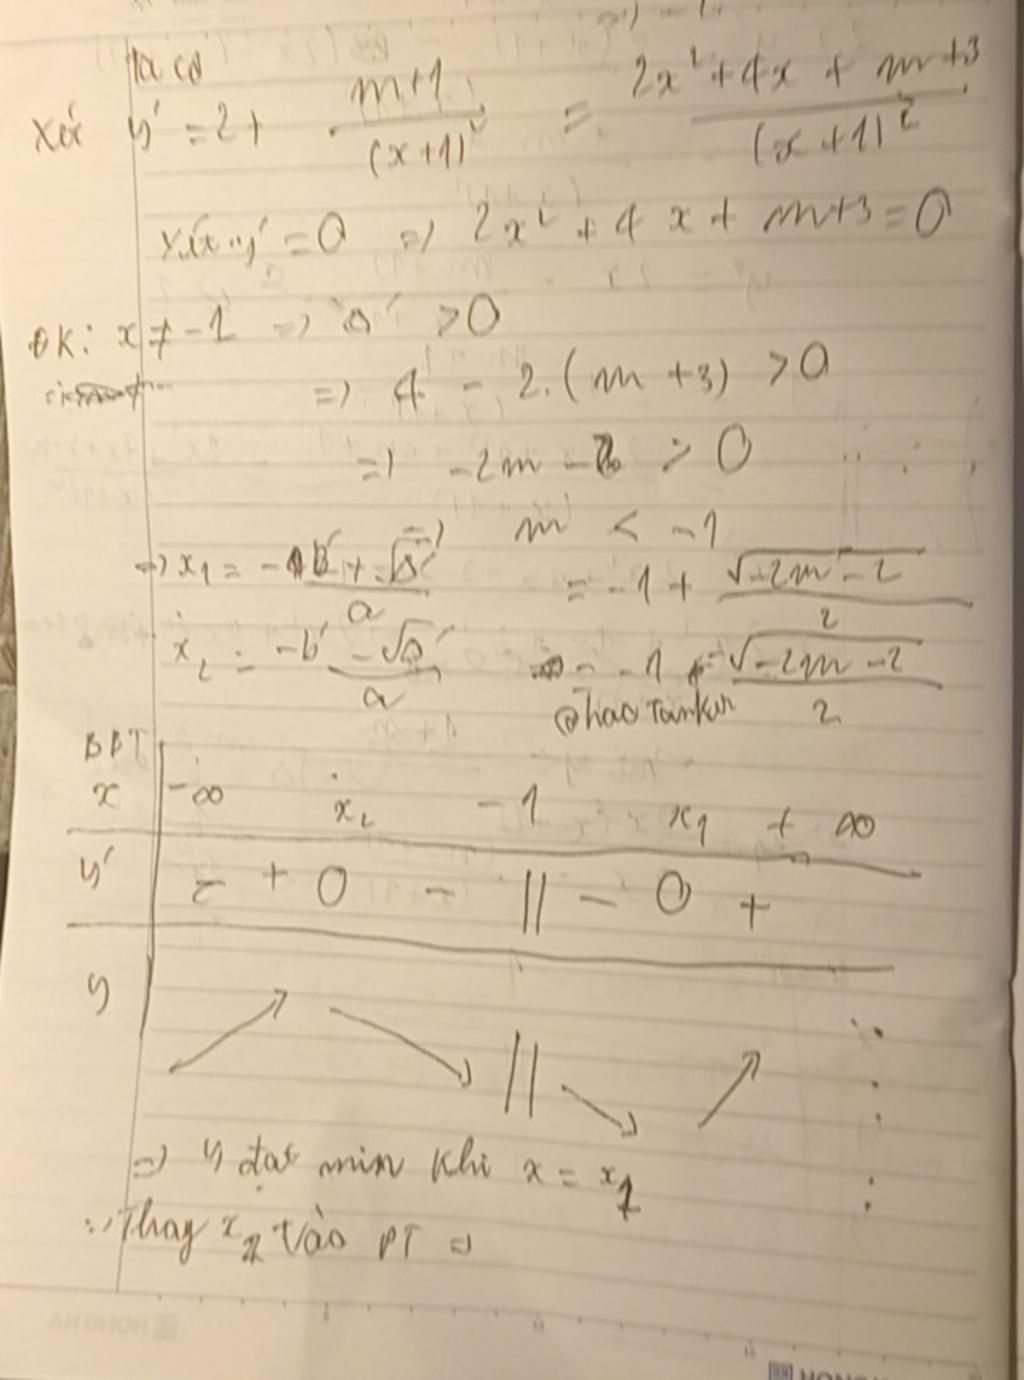 Ta có
Xét y' = 2 + \frac{m+1}{(x+1)^2} = \frac{2x^2+4x+m+3}{(x+1)^2}
Xét y' = 0 => 2x^2 + 4x + m+3 = 0
ĐK: x ≠ -1 => Δ' > 0
=> 4 - 2.(m+3) > 0
=> -2m - 2 > 0
=> m < -1
=> x_1 = \frac{-b' + \sqrt{Δ'}}{a} = -1 + \frac{\sqrt{-2m-2}}{2}
x_2 = \frac{-b' - \sqrt{Δ'}}{a} = -1 - \frac{\sqrt{-2m-2}}{2}
BBT
x -∞ x_2 -1 x_1 +∞
y' + 0 - || - 0 +
y ↗ ↘ || ↘ ↗
=> y đạt min khi x = x_1
Thay x_2 vào PT =>
HONG HA